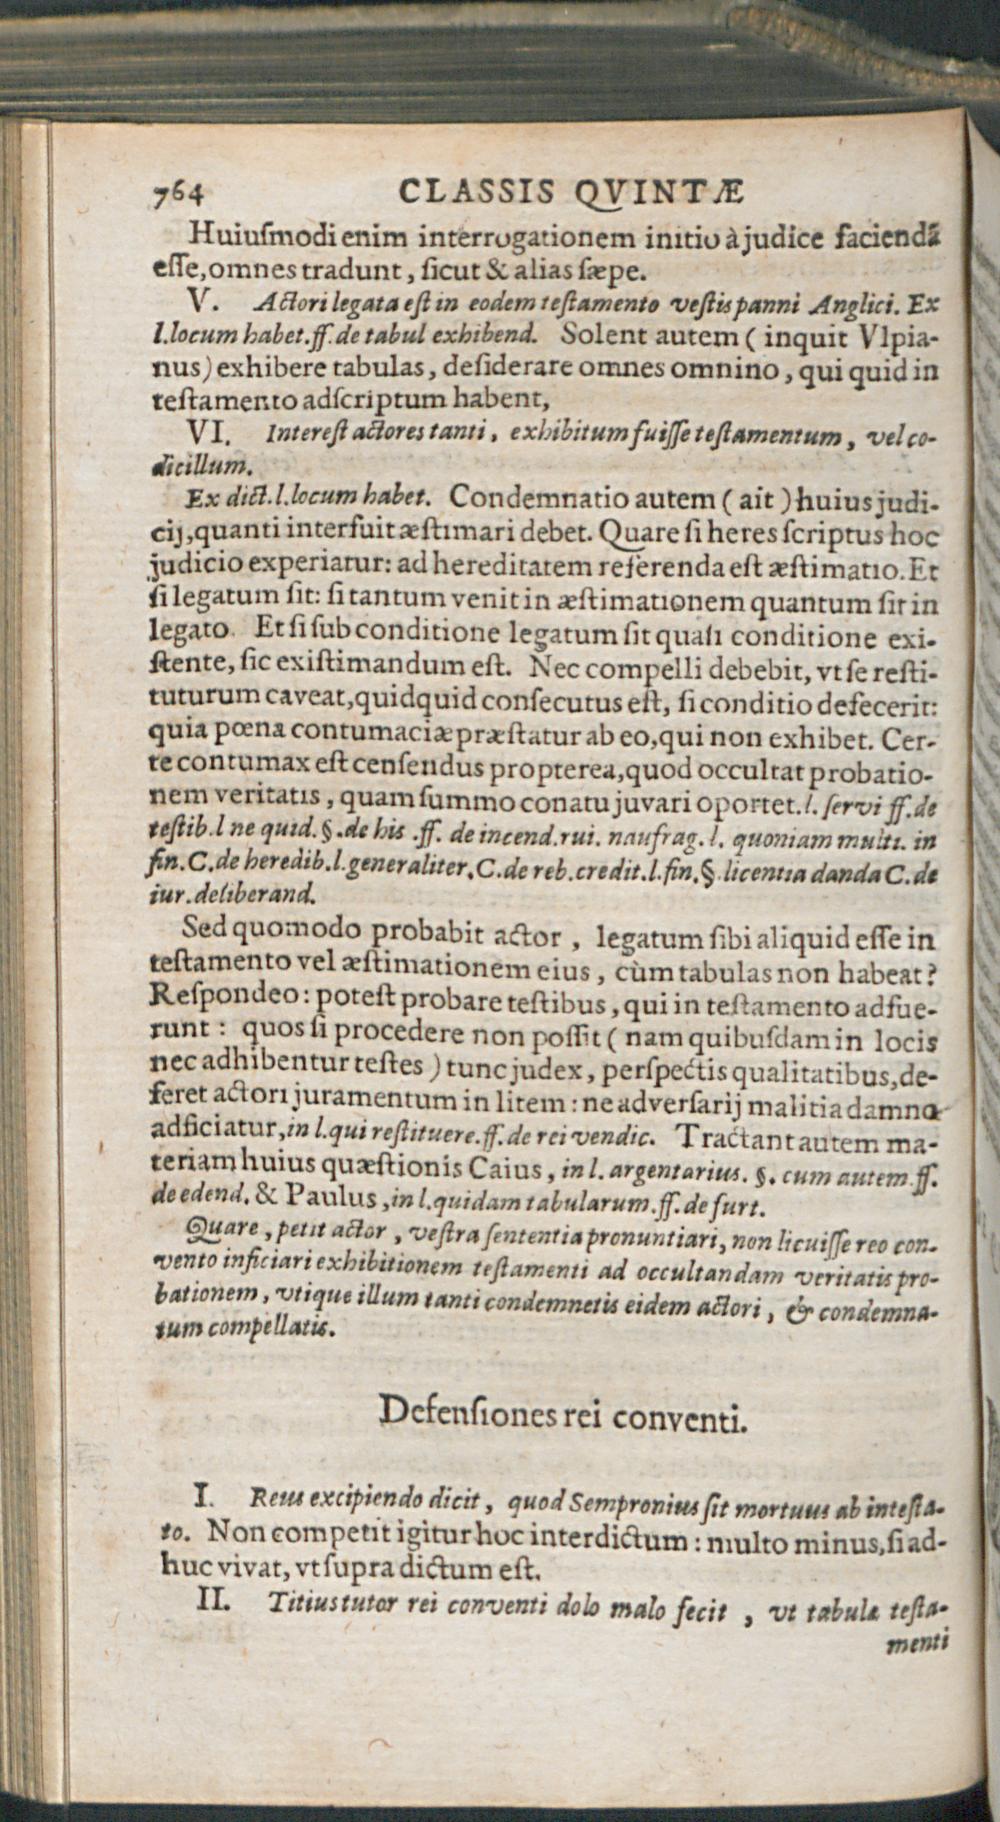 764 CLASSIS QVINTÆ
Huiuſmodi enim interrogationem initio à judice faciendã
eſſe, omnes tradunt, ſicut & alias ſæpe.
V. Actori legata eſt in eodem teſtamento veſtis panni Anglici. Ex
l. locum habet. ff. de tabul exhibend. Solent autem ( inquit Vlpia-
nus) exhibere tabulas, deſiderare omnes omnino, qui quid in
teſtamento adſcriptum habent,
VI. Intereſt actores tanti, exhibitum fuiſſe teſtamentum, vel co-
dicillum.
Ex dict. l. locum habet. Condemnatio autem ( ait ) huius judi-
cij, quanti interfuit æſtimari debet. Quare ſi heres ſcriptus hoc
judicio experiatur: ad hereditatem referenda eſt æſtimatio. Et
ſi legatum ſit: ſi tantum venit in æſtimationem quantum ſit in
legato. Et ſi ſub conditione legatum ſit quaſi conditione exi-
ſtente, ſic exiſtimandum eſt. Nec compelli debebit, vt ſe reſti-
tuturum caveat, quidquid conſecutus eſt, ſi conditio defecerit:
quia pœna contumaciæ præſtatur ab eo, qui non exhibet. Cer-
te contumax eſt cenſendus propterea, quod occultat probatio-
nem veritatis, quam ſummo conatu juvari oportet. l. ſervi ff. de
teſtib. l ne quid. §. de his .ff. de incend. rui. naufrag. l. quoniam multi. in
fin. C. de heredib. l. generaliter. C. de reb. credit. l. fin. § licentia danda C. de
iur. deliberand.
Sed quomodo probabit actor, legatum ſibi aliquid eſſe in
teſtamento vel æſtimationem eius, cùm tabulas non habeat?
Reſpondeo: poteſt probare teſtibus, qui in teſtamento adfue-
runt: quos ſi procedere non poſſit ( nam quibuſdam in locis
nec adhibentur teſtes ) tunc judex, perſpectis qualitatibus, de-
feret actori juramentum in litem: ne adverſarij malitia damno
adficiatur, in l. qui reſtituere. ff. de rei vendic. Tractant autem ma-
teriam huius quæſtionis Caius, in l. argentarius. §. cum autem ff.
de edend. & Paulus, in l. quidam tabularum. ff. de furt.
Quare, petit actor, veſtra ſententia pronuntiari, non licuiſſe reo con-
vento inficiari exhibitionem teſtamenti ad occultandam veritatis pro-
bationem, vtique illum tanti condemnetis eidem actori, & condemna-
tum compellatis.
Defenſiones rei conventi.
I. Reus excipiendo dicit, quod Sempronius ſit mortuus ab inteſta-
to. Non competit igitur hoc interdictum: multo minus, ſi ad-
huc vivat, vt ſupra dictum eſt.
II. Titius tutor rei conventi dolo malo fecit, vt tabulæ teſta-
menti